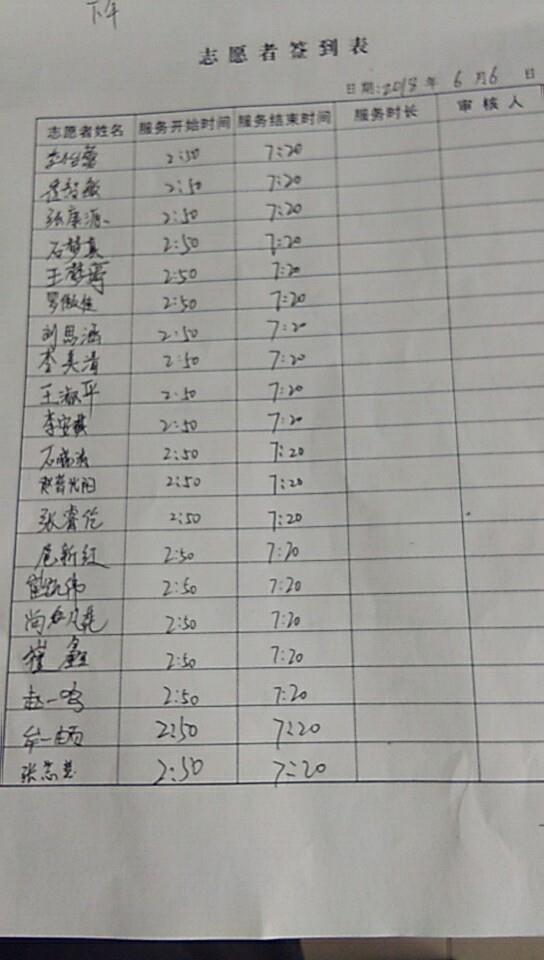 下午
志愿者签到表
日期:2018年6月6日
志愿者姓名 服务开始时间 服务结束时间 服务时长 审核人
2:50 7:20
2:50 7:20
张康源 2:50 7:20
石梦真 2:50 7:20
王梦婷 2:50 7:20
2:50 7:20
刘思涵 2:50 7:20
李美清 2:50 7:20
王淑平 2:50 7:20
李安祺 2:50 7:20
2:50 7:20
2:50 7:20
张睿伦 2:50 7:20
2:50 7:20
2:50 7:20
2:50 7:20
崔鑫 2:50 7:20
赵一鸣 2:50 7:20
2:50 7:20
张志慧 2:50 7:20